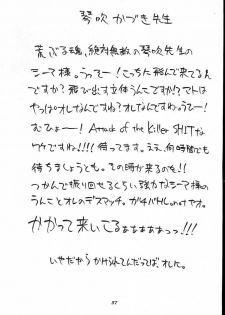 琴吹かづき先生
荒ぶる魂、絶対無敵の琴吹先生の
シーマ様。うってー!こっちに飛んで来てるん
ですか?飛び出す立体うんですか?マトは
やっぱオレなんですね?オレなんですね。うてー!
むひょー! Attack of the Killer SHITな
ワケですね!!!! 待ってます。ええ、何時間でも
待ちましょうとも。その時が来るのを!!
つかんで振り回せるくらい強力なシーマ様の
うんことオレのデスマッチ。ガチバトル。not ヤオ。
かかって来いてるぁぁぁぁぁっっ!!!
いやだからかけられてんだってばよオレに。
37